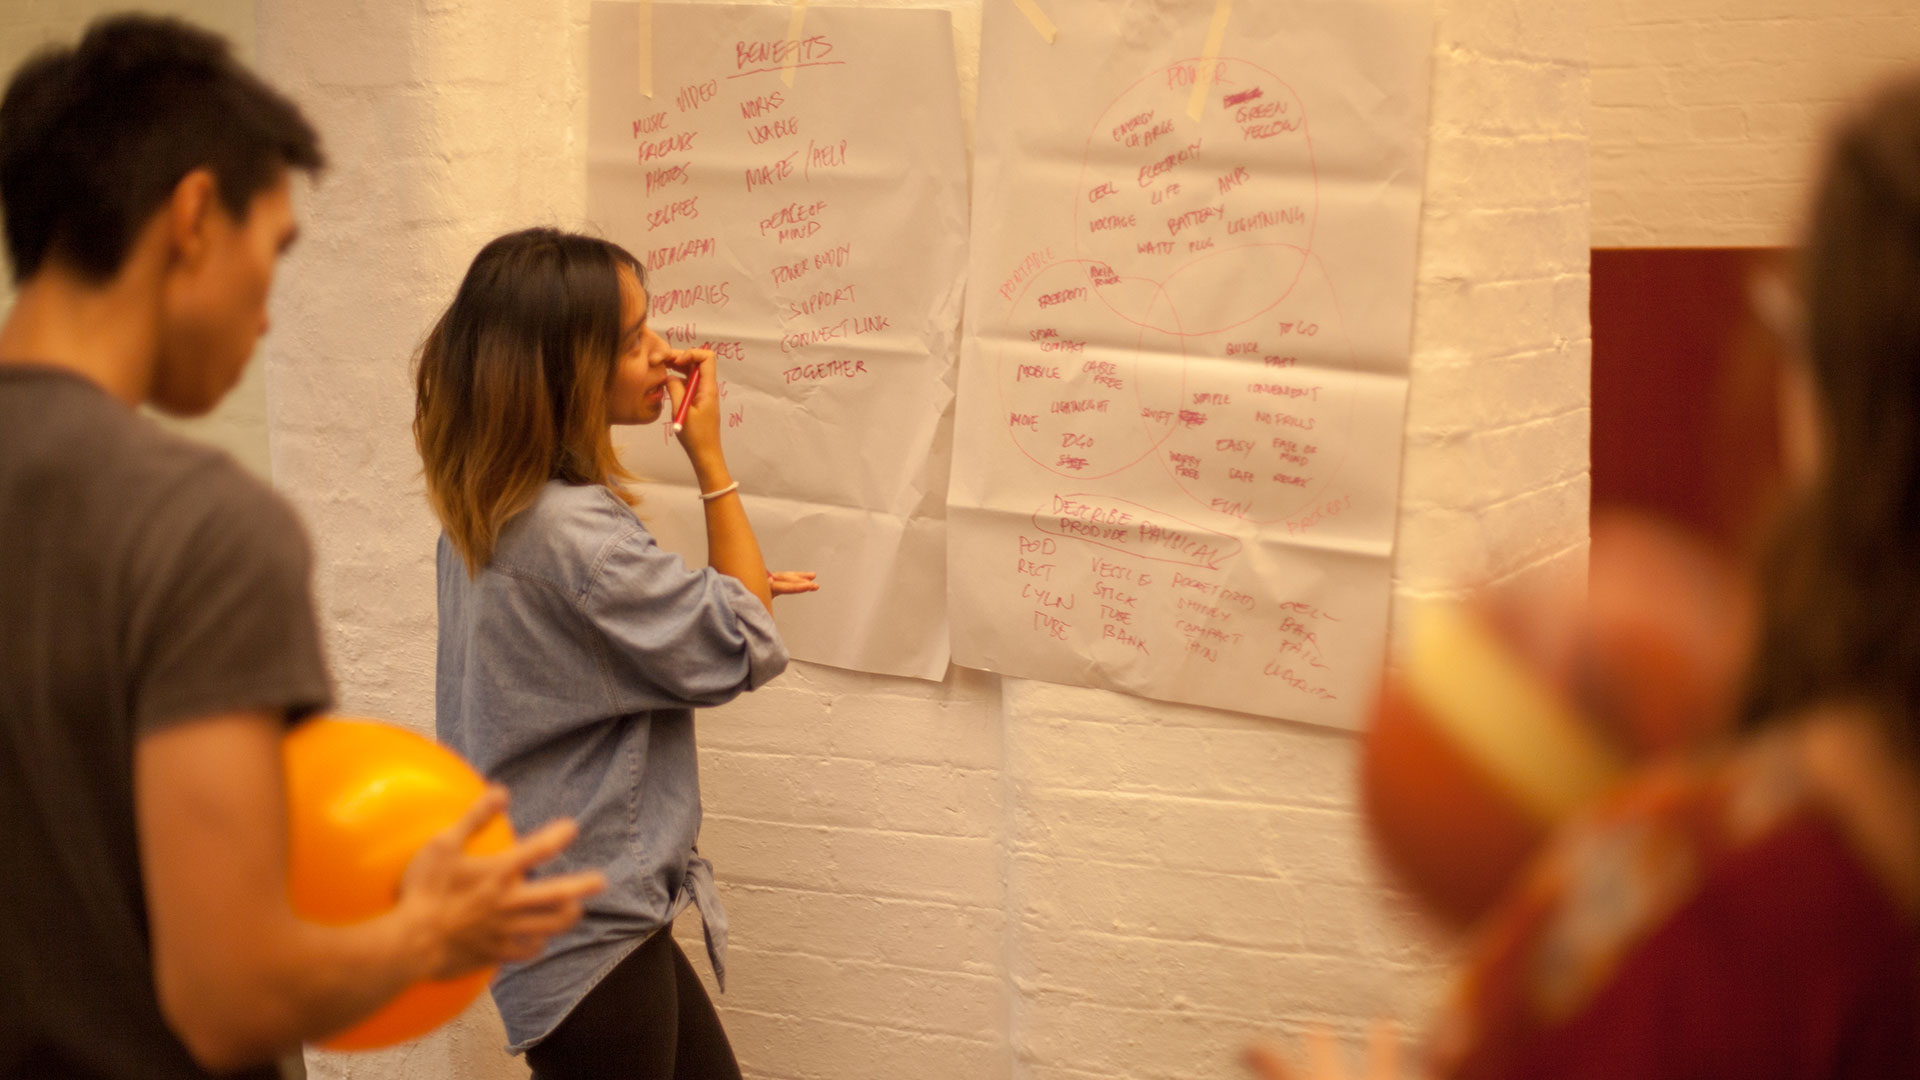 BENEFITS
MUSIC VIDEO
FRIENDS
PHOTOS
SELFIES
INSTAGRAM
MEMORIES
FUN
ON
WORKS
USABLE
MATE / HELP
PEACE OF
MIND
POWER BUDDY
SUPPORT
CONNECT LINK
TOGETHER
POWER
ENERGY
CHARGE
GREEN
YELLOW
ELECTRICITY
CELL
LIFE
AMPS
VOLTAGE
BATTERY
LIGHTNING
WATTS PLUG
PORTABLE
FREEDOM
SMALL
COMPACT
MOBILE
CABLE
FREE
MOVE
LIGHTWEIGHT
TO GO
TO GO
QUICK
FAST
CONVENIENT
SIMPLE
SWIFT
NO FRILLS
EASY
EASE OF
MIND
WORRY
FREE
SAFE
RELAX
FUN
DESCRIBE
PHYSICAL
POD
RECT
CYLN
TUBE
STICK
TUBE
BANK
COMPACT
THIN
BAR